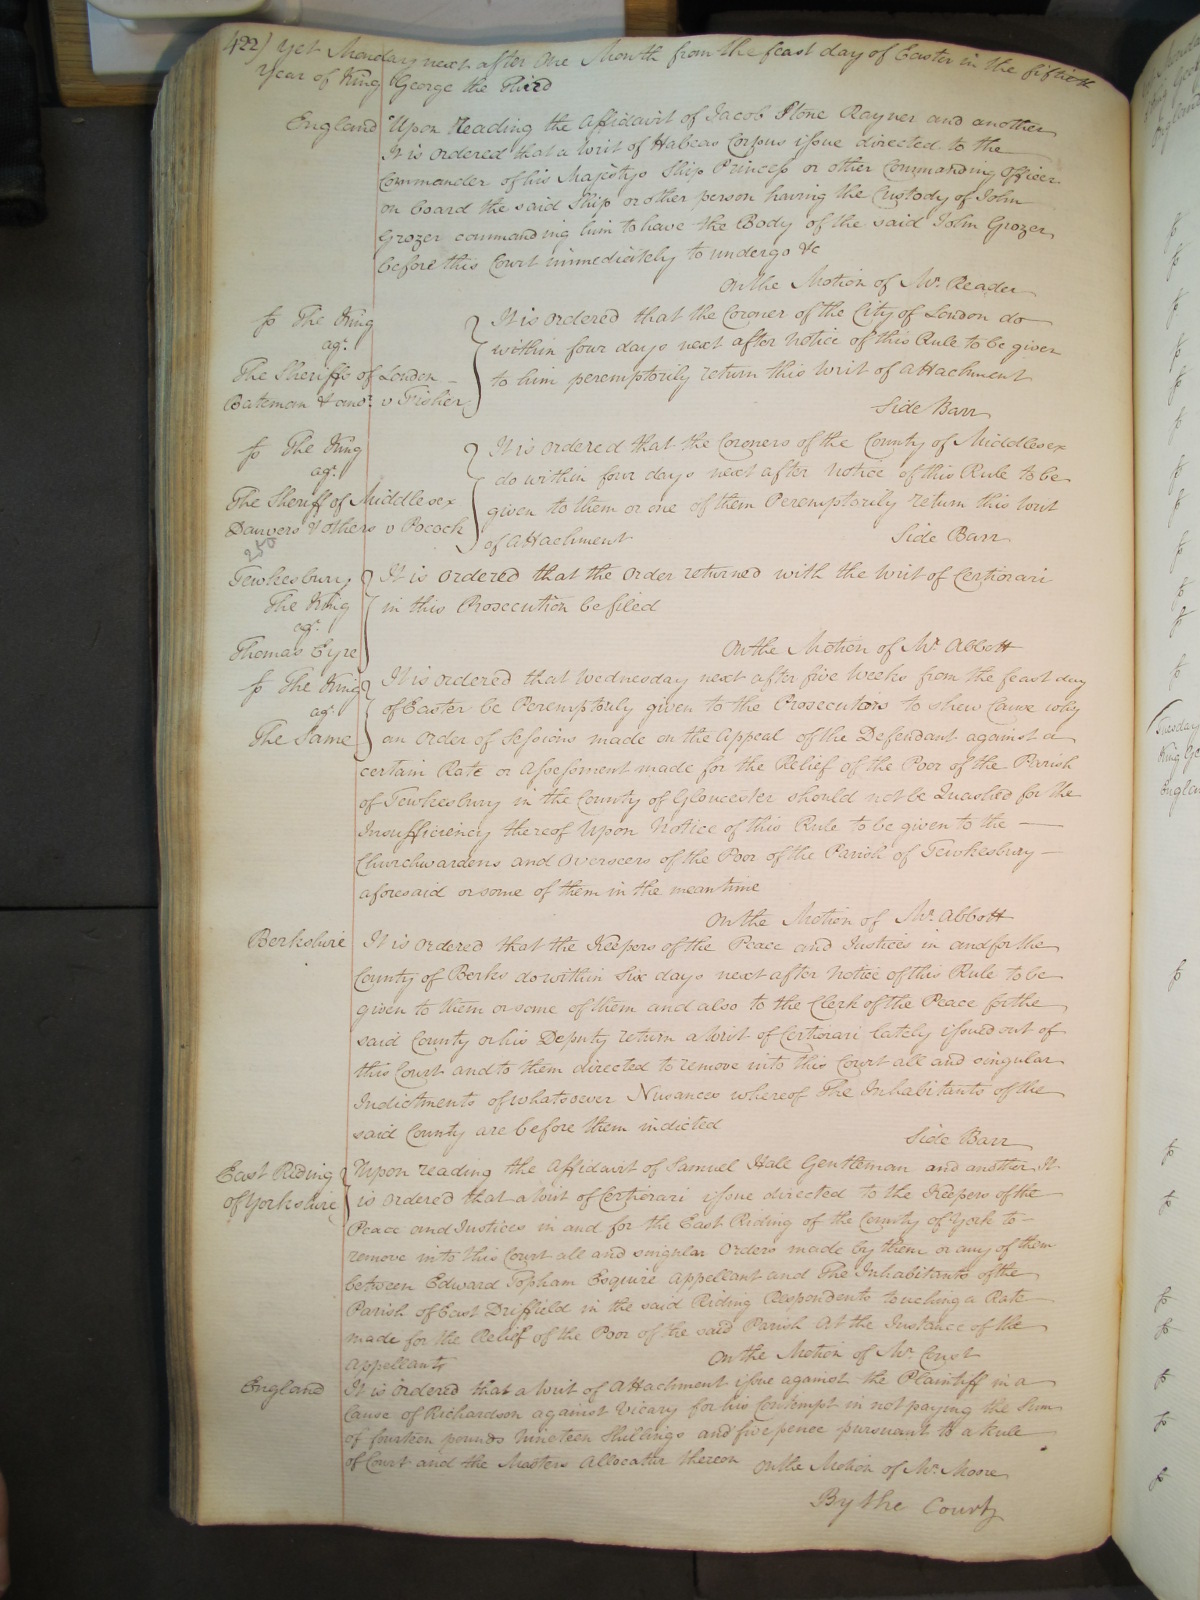 422) Yet Monday next after One Month from the feast day of Easter in the fiftieth
Year of King George the Third
England Upon Reading the Affidavit of Jacob Stone Rayner and another
It is ordered that a Writ of Habeas Corpus issue directed to the
Commander of his Majestys Ship Princess or other Commanding Officer
on board the said Ship or other person having the Custody of John
Grozer commanding him to have the Body of the said John Grozer
before this Court immediately to undergo &c
On the Motion of Mr. Reader
The King
agt.
The Sheriffs of London
Bateman & anor. v Fisher
It is ordered that the Coroner of the City of London do
within four days next after Notice of this Rule to be given
to him peremptorily return this Writ of Attachment
Side Barr
The King
agt.
The Sheriff of Middlesex
Danvers & others v Pocock
It is ordered that the Coroners of the County of Middlesex
do within four days next after Notice of this Rule to be
given to them or one of them Peremptorily return this Writ
of Attachment Side Barr
250
Tewkesbury
The King
agt.
Thomas Eyre
It is ordered that the Order returned with the Writ of Certiorari
in this Prosecution be filed
On the Motion of Mr. Abbott
The King
agt.
The Same
It is ordered that Wednesday next after five Weeks from the feast day
of Easter be Peremptorily given to the Prosecutors to shew Cause why
an Order of Sessions made on the Appeal of the Defendant against a
certain Rate or Assessment made for the Relief of the Poor of the Parish
of Tewkesbury in the County of Gloucester should not be Quashed for the
Insufficiency thereof Upon Notice of this Rule to be given to the
Churchwardens and Overseers of the Poor of the Parish of Tewkesbury
aforesaid or some of them in the mean time
On the Motion of Mr. Abbott
Berkshire It is ordered that the Keepers of the Peace and Justices in and for the
County of Berks do within Six days next after Notice of this Rule to be
given to them or some of them and also to the Clerk of the Peace for the
said County or his Deputy return a Writ of Certiorari lately issued out of
this Court and to them directed to remove into this Court all and singular
Indictments of whatsoever Nusances whereof The Inhabitants of the
said County are before them indicted Side Barr
East Riding
of Yorkshire
Upon reading the Affidavit of Samuel Hall Gentleman and another It
is ordered that a Writ of Certiorari issue directed to the Keepers of the
Peace and Justices in and for the East Riding of the County of York to
remove into this Court all and singular Orders made by them or any of them
between Edward Topham Esquire Appellant and The Inhabitants of the
Parish of East Driffield in the said Riding Respondents touching a Rate
made for the Relief of the Poor of the said Parish At the Instance of the
Appellants On the Motion of Mr.
England It is ordered that a Writ of Attachment issue against the Plaintiff in a
Cause of Richardson against Vicary for his Contempt in not paying the Sum
of fourteen pounds Nineteen Shillings and five pence pursuant to a Rule
of Court and the Masters Allocatur thereon On the Motion of Mr. Moore
By the Court